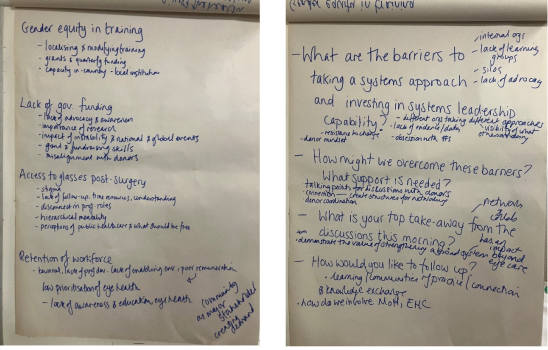 Gender equity in training
- localising & modifying training
- grants & quarterly funding
- capacity in-country - local institution
Lack of gov. funding
- lack of advocacy & awareness
- importance of research
- impact of instability & national & global events
- grant & fundraising skills
- misalignment with donors
Access to glasses post-surgery
- stigma
- lack of follow-up, resources, understanding
- hierarchical mentality
- perceptions of public healthcare & what should be free
Retention of workforce
- burnout, lack of prof dev. lack of enabling env, poor remuneration
low prioritisation of eye health
- lack of awareness & education, eye health
community
as major
stakeholder
creating
demand
- What are the barriers to
taking a systems approach
and investing in systems leadership
capability?
- internal orgs
- lack of learning
groups
- silos
- lack of advocacy
- different orgs taking different approaches
- lack of evidence/data
- resistance to change
- donor mindset
- obsession with #s
- How might we overcome these barriers?
What support is needed?
talking points for discussions with donors
connection - create structures for networking
donor coordination
- What is your top take-away from the
discussions this morning?
- demonstrate the value of strengthening a broad system beyond
eye care
network
collab
has an
impact
- How would you like to follow up?
- learning/communities of practice/connection
& knowledge exchange
- how do we involve MoH, EHC